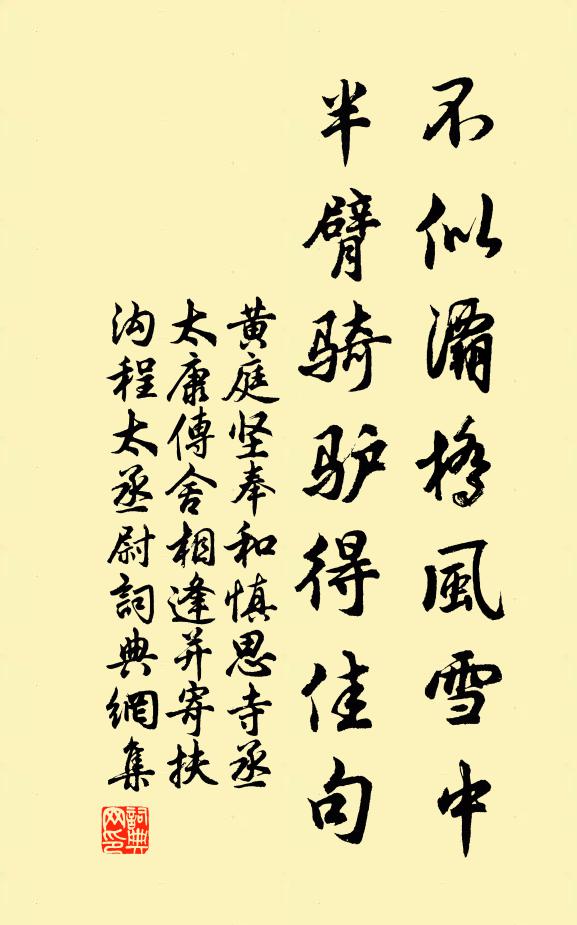 不似灞橋風雪中
半臂骑驴得佳句
黄庭坚奉和慎思寺丞
太康傳舍相逢并寄扶
沟程太丞尉詞典網集
詞典网印